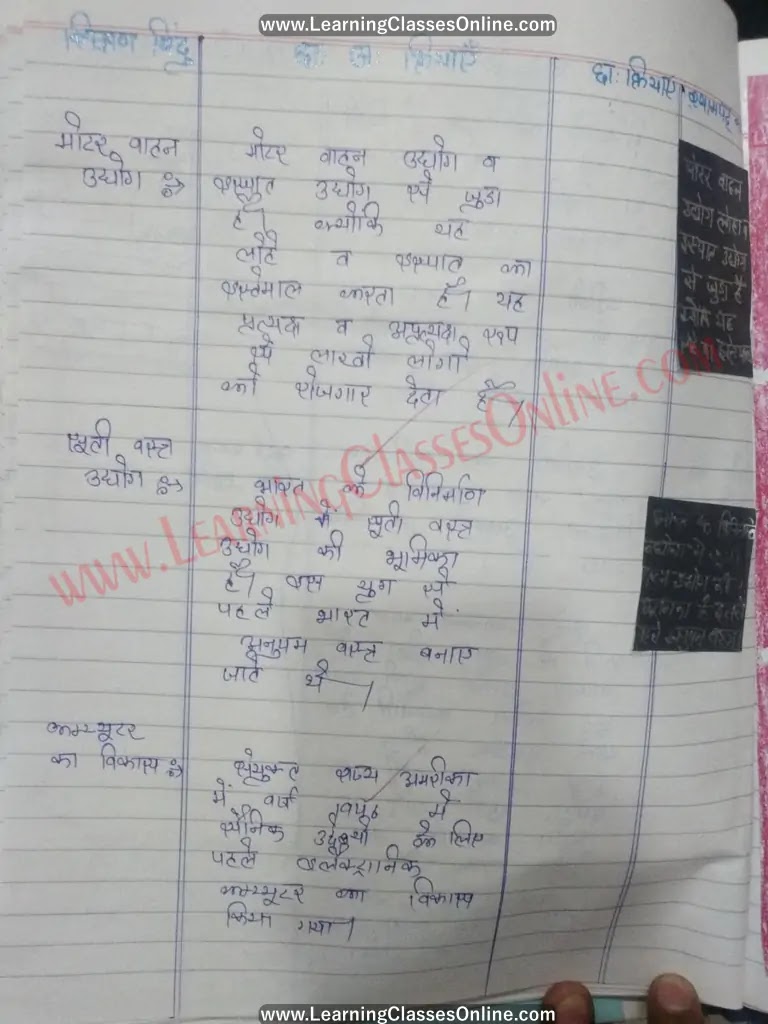 www.LearningClassesOnline.com
शिक्षण बिंदु
छा. अ. क्रियाएँ
छा. क्रियाएँ
श्यामपट्ट
मोटर वाहन
उद्योग ⇒
मोटर वाहन उद्योग व
इस्पात उद्योग से जुड़ा
है। क्योंकि यह
लौहे व इस्पात का
इस्तेमाल करता है। यह
प्रत्यक्ष व अप्रत्यक्ष रूप
से लाखों लोगो
को रोजगार देता है।
मोटर वाहन
उद्योग लोहा व
इस्पात उद्योग
से जुड़ा है
क्योंकि यह
सूती वस्त्र
उद्योग ⇒
भारत के विनिर्माण
उद्योग में सूती वस्त्र
उद्योग की भूमिका
है। इस युग से
पहले भारत में
अनुपम वस्त्र बनाए
जाते थे।
www.LearningClassesOnline.com
कम्प्यूटर
का विकास ⇒
संयुक्त राज्य अमरीका
में वर्ष में
सैनिक उद्देश्यो के लिए
पहले इलैक्ट्रानिक
कम्प्यूटर का विकास
किया गया।
www.LearningClassesOnline.com